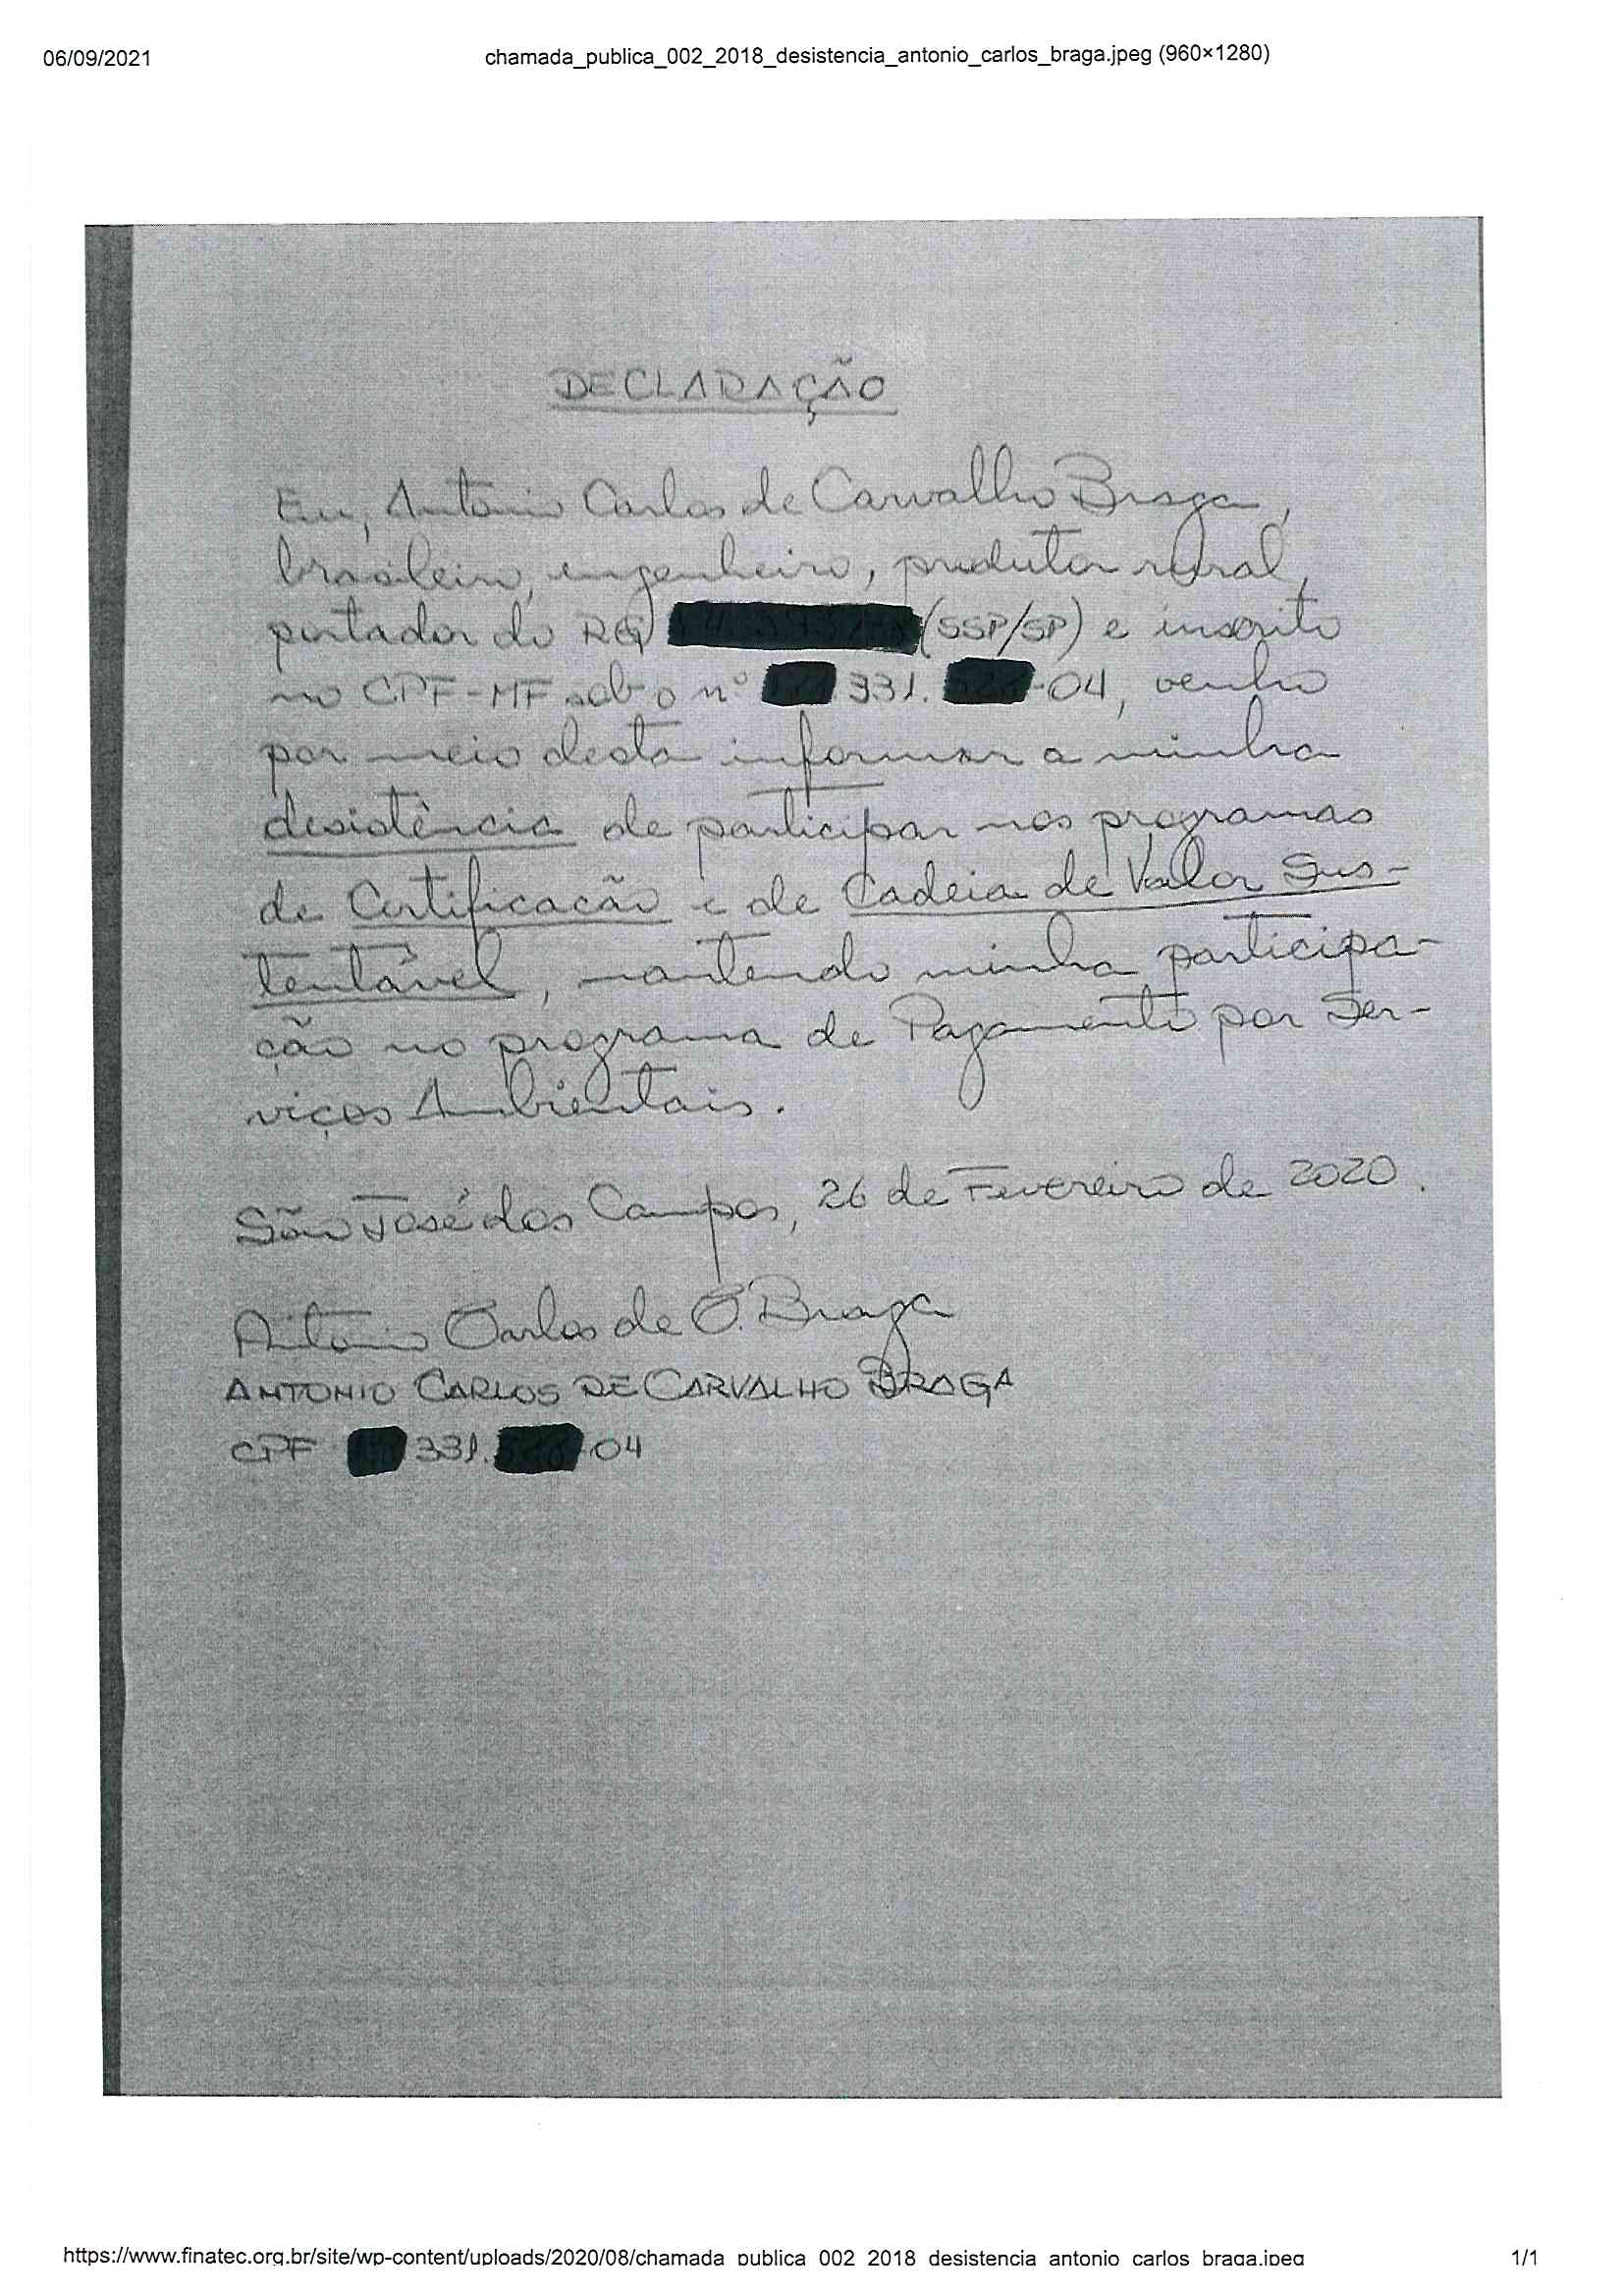 06/09/2021 chamada_publica_002_2018_desistencia_antonio_carlos_braga.jpeg (960×1280)
DECLARAÇÃO
Eu, Antonio Carlos de Carvalho Braga,
brasileiro, engenheiro, produtor rural,
portador do RG (SSP/SP) e inscrito
no CPF-MF sob o nº 331. -04, venho
por meio desta informar a minha
desistência de participar nos programas
de Certificação e de Cadeia de Valor Sus-
tentável, mantendo minha participa-
ção no programa de Pagamento por Ser-
viços Ambientais.
São José dos Campos, 26 de Fevereiro de 2020.
Antonio Carlos de C. Braga
ANTONIO CARLOS DE CARVALHO BRAGA
CPF 331. -04
https://www.finatec.org.br/site/wp-content/uploads/2020/08/chamada_publica_002_2018_desistencia_antonio_carlos_braga.jpeg 1/1